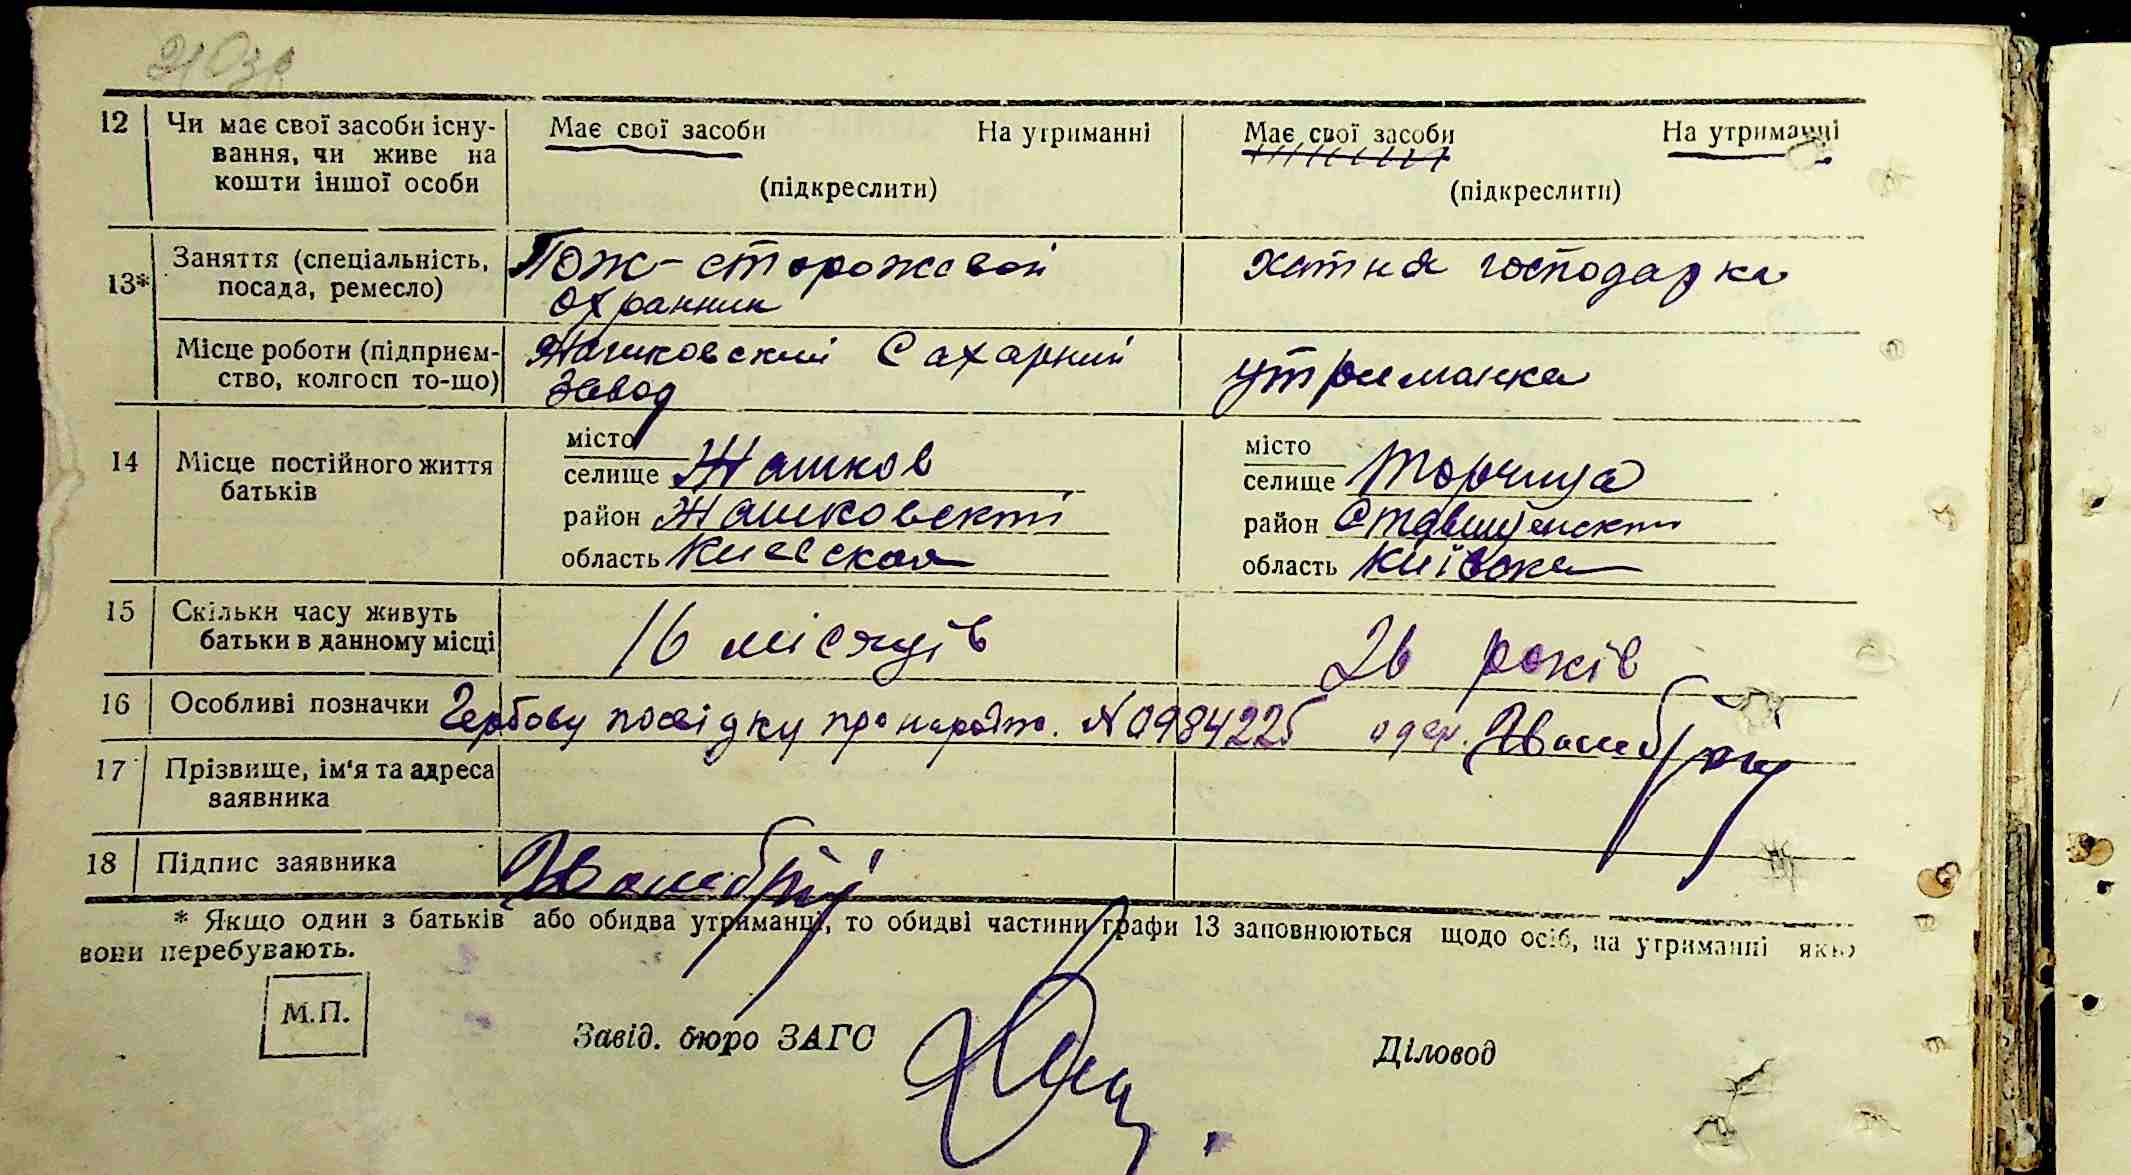 210зв
12 Чи має свої засоби існу-
вання, чи живе на
кошти іншої особи
Має свої засоби На утриманні
(підкреслити)
Має свої засоби На утриманні
(підкреслити)
13* Заняття (спеціальність,
посада, ремесло)
Пож-сторожевой
охранник
хатня господарка
Місце роботи (підприєм-
ство, колгосп то-що)
Жашковский Сахарний
завод
утриманка
14 Місце постійного життя
батьків
місто
селище Жашков
район Жашковский
область Киевская
місто
селище Торчиця
район Ставищенский
область Київська
15 Скільки часу живуть
батьки в данному місці
16 місяців
26 років
16 Особливі позначки Гербову посвідку про народж. N 0984225 одер.
17 Прізвище, ім'я та адреса
заявника
18 Підпис заявника
* Якщо один з батьків або обидва утриманці, то обидві частини графи 13 заповнюються щодо осіб, на утриманні яких
вони перебувають.
М.П.
Завід. бюро ЗАГС
Діловод